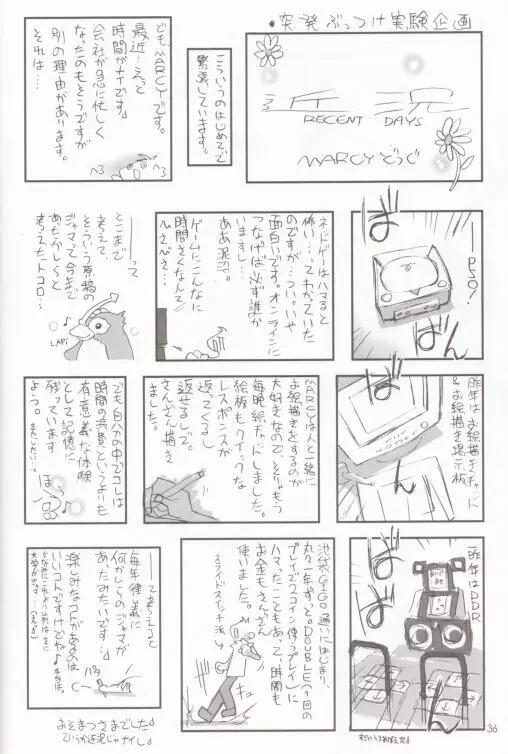 ・突発ぶっつけ実験企画
近況
RECENT DAYS
MARCYどうぐ
こういうのはじめてで
緊張しています。
どもMARCYです。
最近…えっと
時間がナイです。
会社が急に忙しく
なったのもそうですが
別の理由があります。
それは…
──PSO!
ばばん
ネットゲーはハマると
怖い…ってわかっていた
のですが…つい。いや
面白いです。オンラインに
つなげば必ず誰か
いますし…
ああ泥沼。
ゲームにこんなに
時間さなんて
──って
とここまで
考えて
そういう原稿の
ジャマって今まで
あたかしらと
考えたトコロ…
LAPi
昨年はお絵描きチャット
&お絵描き掲示板
ばん
MARCYは人と一緒に
お絵描きをするのが
大好きなので、そりゃもう
毎晩絵チャットしました。
絵板もクイックな
レスポンスが
返ってくるし
返せるしで。
さんざん描き
ました。
でも自分の中でコレは
時間の浪費というよりも
有意義な体験
として記憶に
残っています
よう。
またしたい…。
ほう
昨年はDDR
ばばん
池袋GIGO通いにはじまり、
丸々1年ずっと。DOUBLE(1回の
プレイで2コイン使うプレイ)に
ハマったこともあって時間も
お金もさんざん
使いました。
スライドスイッチ派
キュ
──って考えると
毎年律義に
何かしらのジャマが
あったみたいです…
楽しみなコトがあるのは
いいコトですけどね♪
おそまつさまでした♪
36